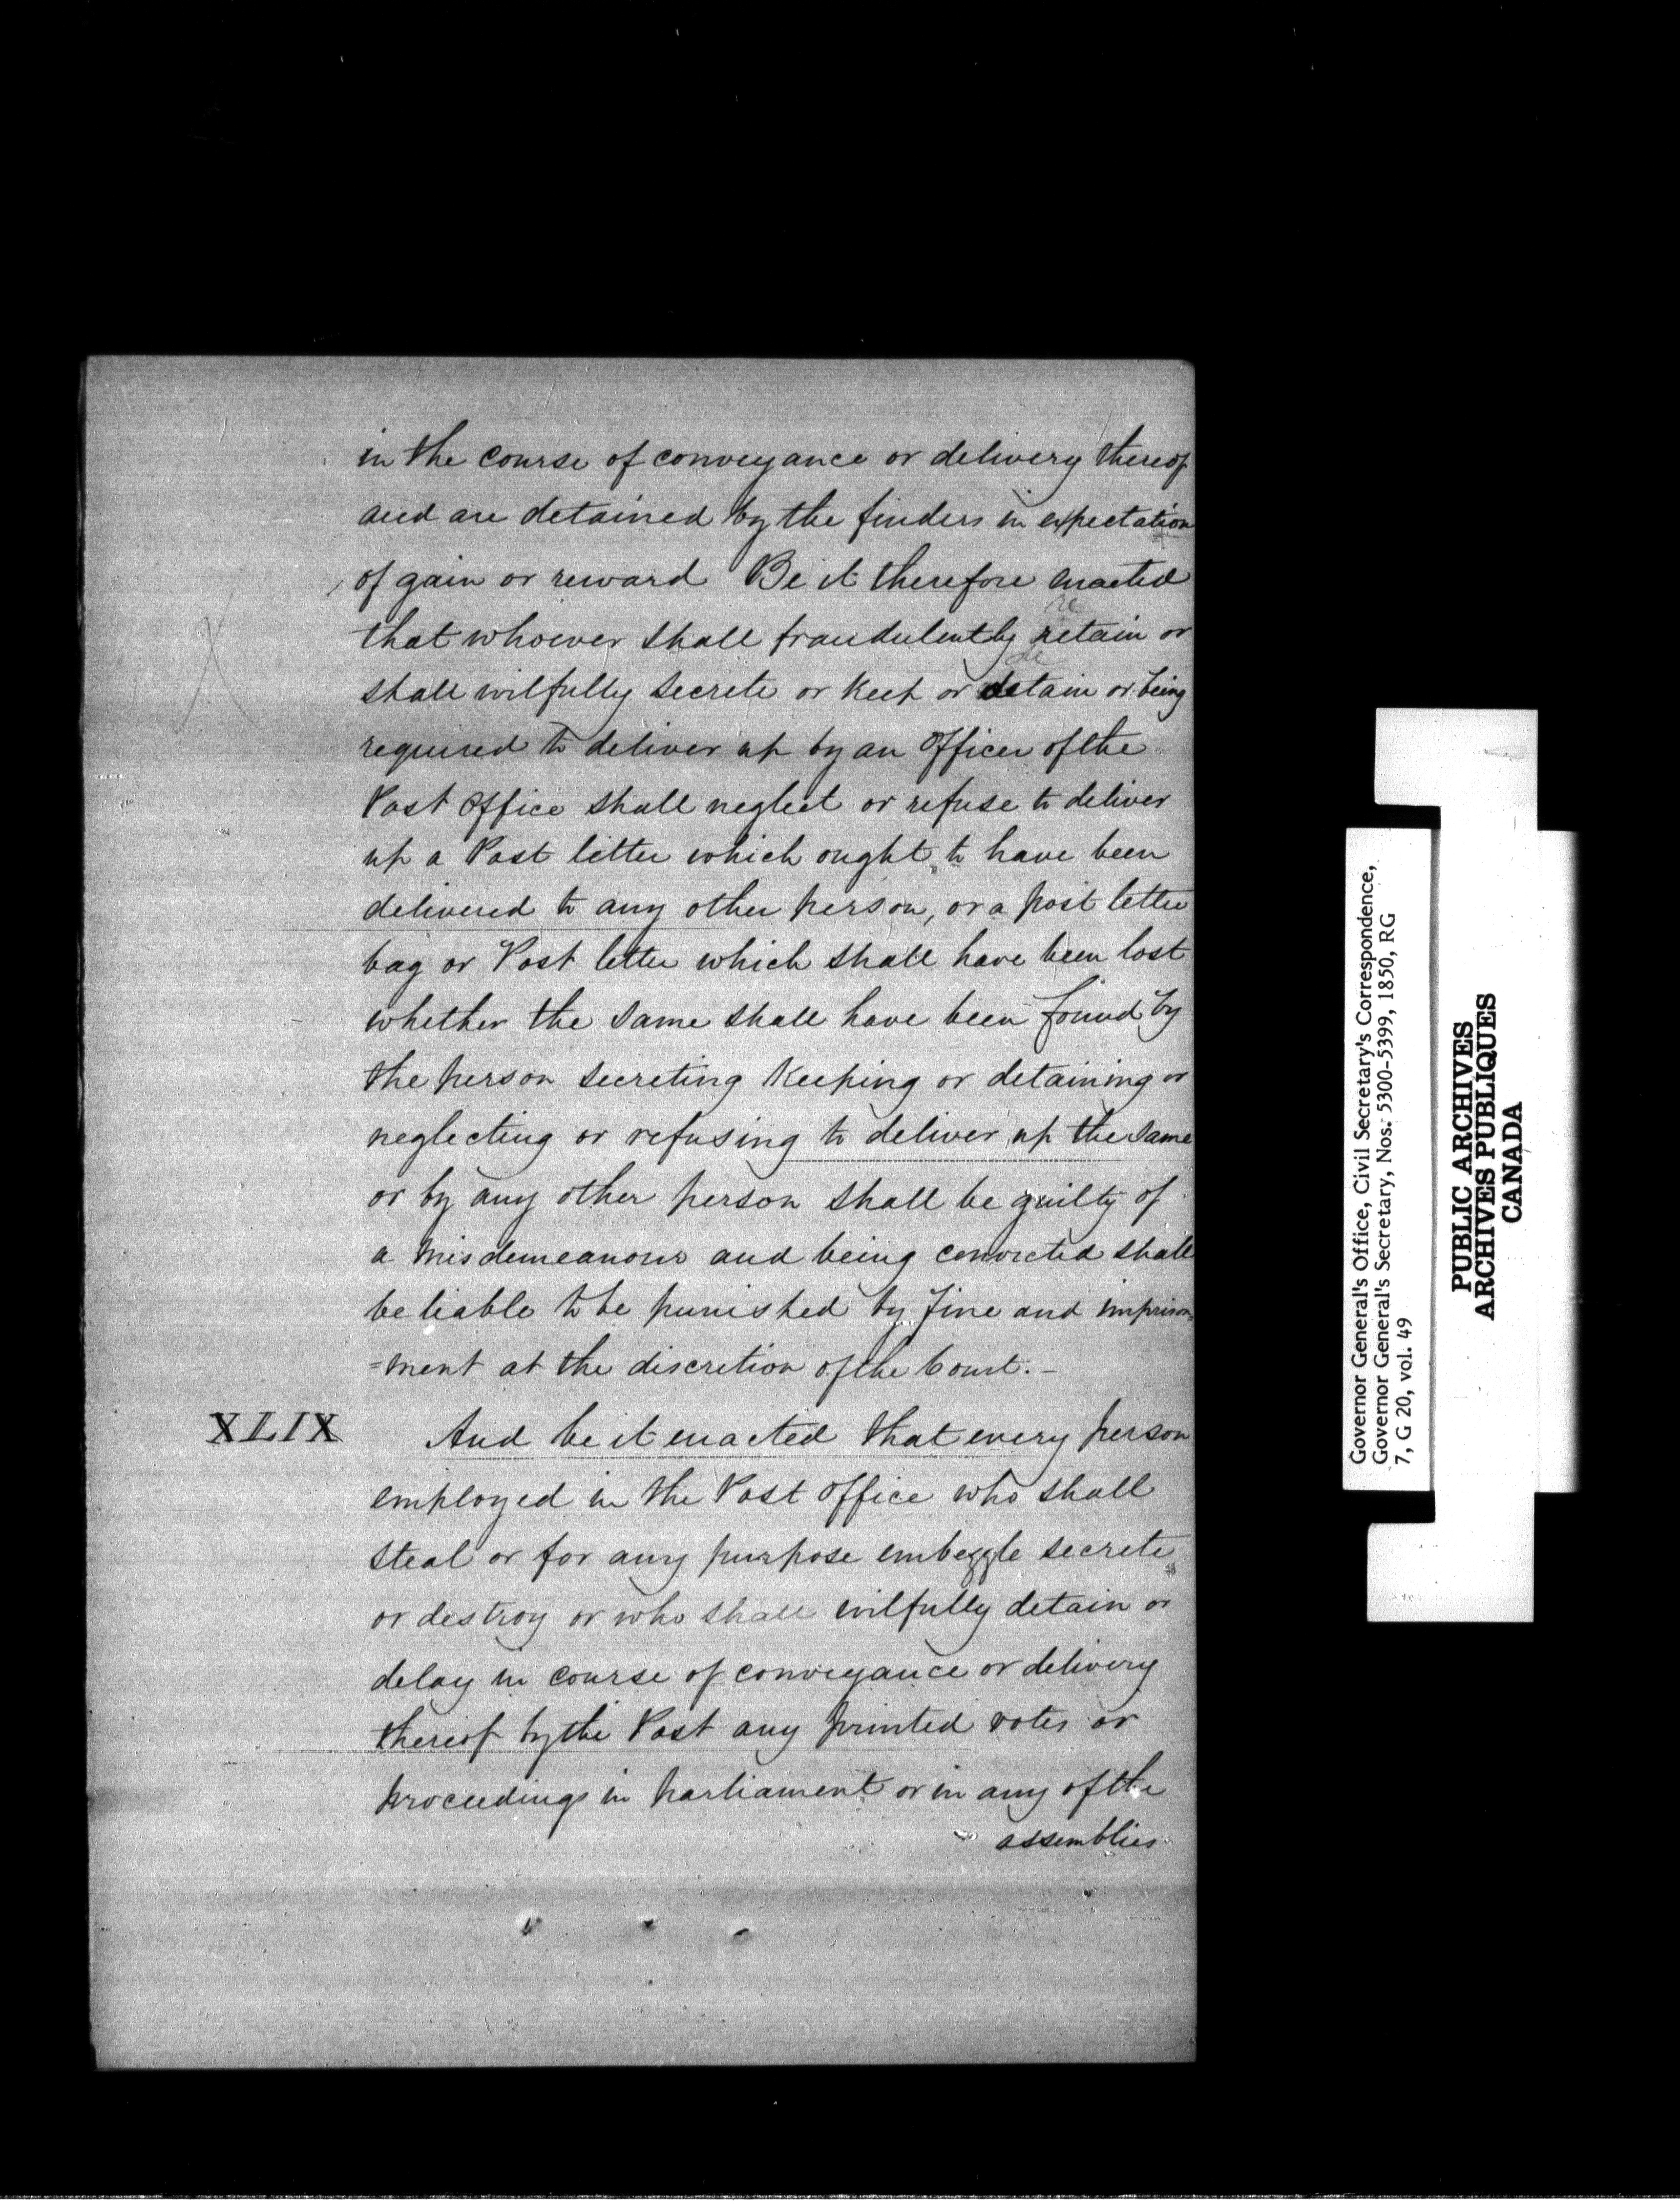 in the course of conveyance or delivery thereof
and are detained by the finders in expectation
of gain or reward Be it therefore enacted
re
that whoever shall fraudulently retain or
de
shall wilfully secrete or keep or detain or being
required to deliver up by an Officer of the
Post Office shall neglect or refuse to deliver
up a Post letter which ought to have been
delivered to any other person, or a post letter
bag or Post letter which shall have been lost
whether the same shall have been found by
the person secreting keeping or detaining or
neglecting or refusing to deliver up the same
or by any other person shall be guilty of
a misdemeanour and being convicted shall
be liable to be punished by fine and imprison
=ment at the discretion of the Court. –
XLIX And be it enacted that every person
employed in the Post Office who shall
steal or for any purpose embezzle secrete
or destroy or who shall wilfully detain or
delay in course of conveyance or delivery
thereof by the Post any printed votes or
proceedings in Parliament or in any of the
assemblies
Governor General's Office, Civil Secretary's Correspondence,
Governor General's Secretary, Nos. 5300-5399, 1850, RG
7, G 20, vol. 49
PUBLIC ARCHIVES
ARCHIVES PUBLIQUES
CANADA